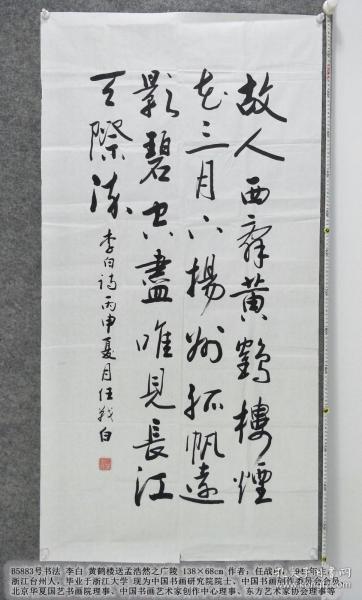 故人西辞黄鹤樓煙
花三月下揚州孤帆遠
影碧空盡唯見長江
天際流
李白詩丙申夏月任戰白
B5883号书法 李白 黄鹤楼送孟浩然之广陵 138×68cm 作者:任战
浙江台州人,毕业于浙江大学 现为中国书画研究院院士、中国书画创作委员会会员、
北京华夏国艺书画院理事、中国书画艺术家创作中心理事、东方艺术家协会理事等